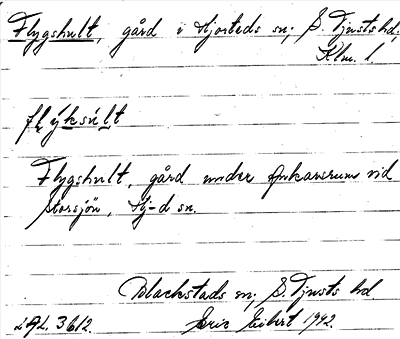 Flygshult, gård i Hjorteds sn; S. Tjusts hd,
Klm. l.
flýksùlt
Flygshult, gård under Ankarsrum vid
Storsjön, Hj-d sn.
Blackstads sn, S. Tjusts hd
ULMA 3612. Eric Eibert 1942.